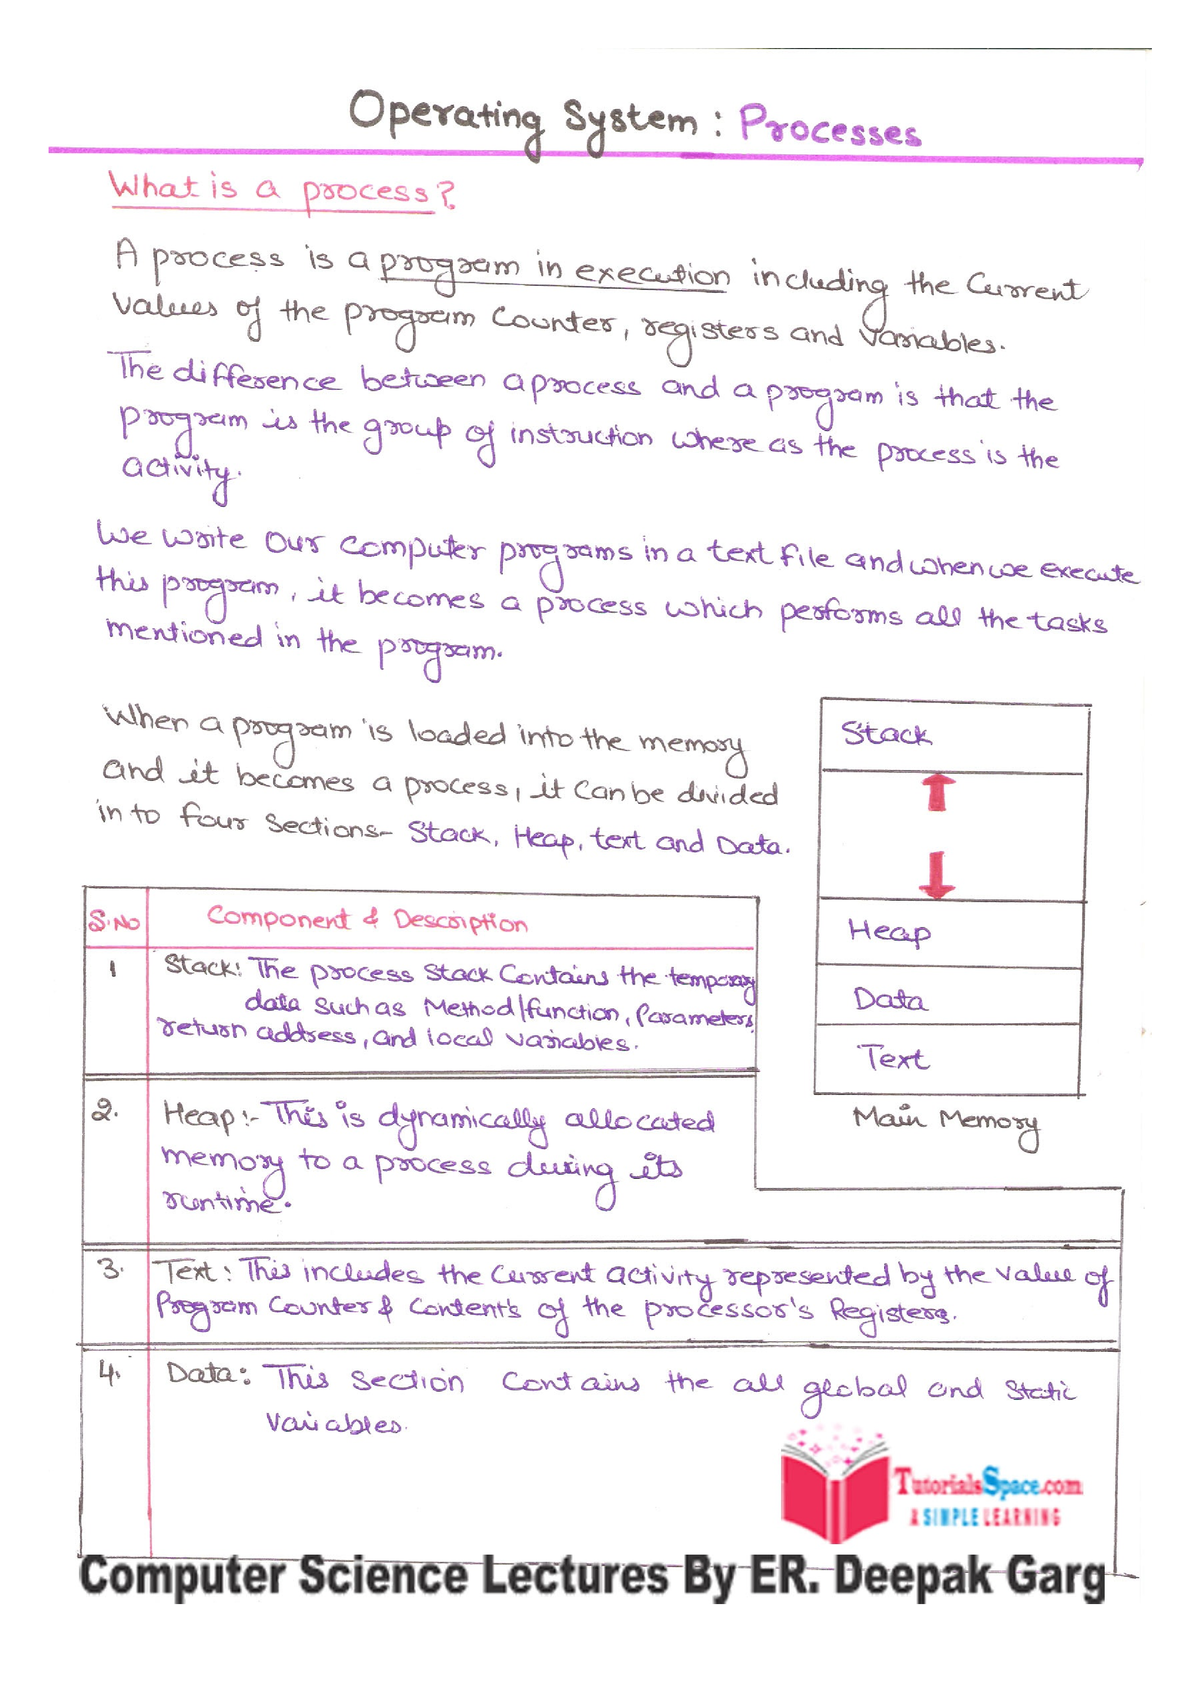 Operating System : Processes
What is a process?
A process is a program in execution including the Current
values of the program Counter, registers and Variables.
The difference between a process and a program is that the
program is the group of instruction where as the process is the
activity.
We write our computer programs in a text file and when we execute
this program, it becomes a process which performs all the tasks
mentioned in the program.
When a program is loaded into the memory
and it becomes a process, it can be divided
in to four sections- Stack, Heap, text and Data.
Stack
Heap
Data
Text
Main Memory
S.No Component & Description
1 Stack: The process Stack Contains the temporary
data such as Method/function, Parameters,
return address, and local variables.
2. Heap:- This is dynamically allocated
memory to a process during its
runtime.
3. Text: This includes the Current activity represented by the value of
Program Counter & Content's of the processor's Registers.
4. Data: This section contains the all global and static
variables.
TutorialsSpace.com
A SIMPLE LEARNING
Computer Science Lectures By ER. Deepak Garg